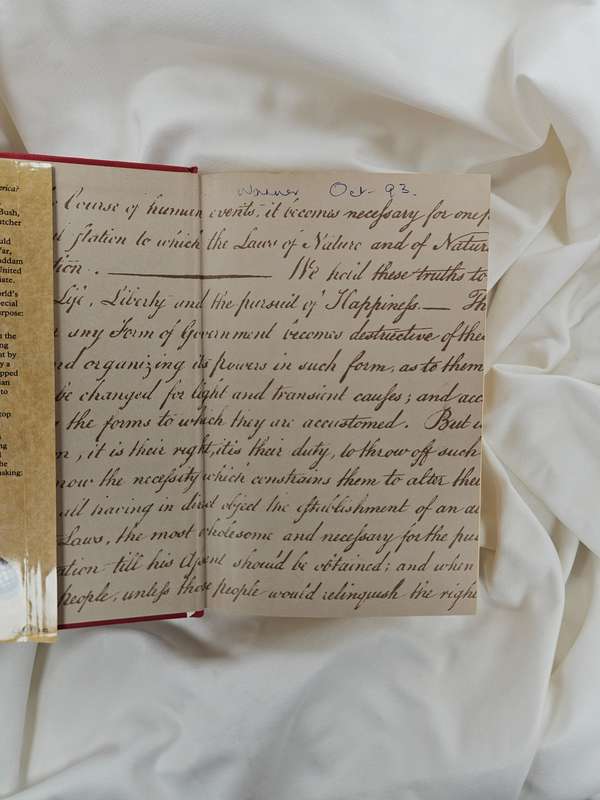 erica?
Bush,
tcher
uld
War,
addam
United
iate.
orld's
pecial
urpose:
n the
ng
at by
y a
pped
ian
to
top
ng
d
the
asking:
Warner Oct - 93.
Course of human events, it becomes necessary for one p
d station to which the Laws of Nature and of Natur
tion. We hold these truths to
Life, Liberty and the pursuit of Happiness.— Th
any Form of Government becomes destructive of thes
nd organizing its powers in such form, as to them
be changed for light and transient causes; and acc
the forms to which they are accustomed. But w
n, it is their right, it is their duty, to throw off such
now the necessity which constrains them to alter thei
all having in direct object the establishment of an a
Laws, the most wholesome and necessary for the pu
ation till his Assent should be obtained; and when
people, unless those people would relinquish the right